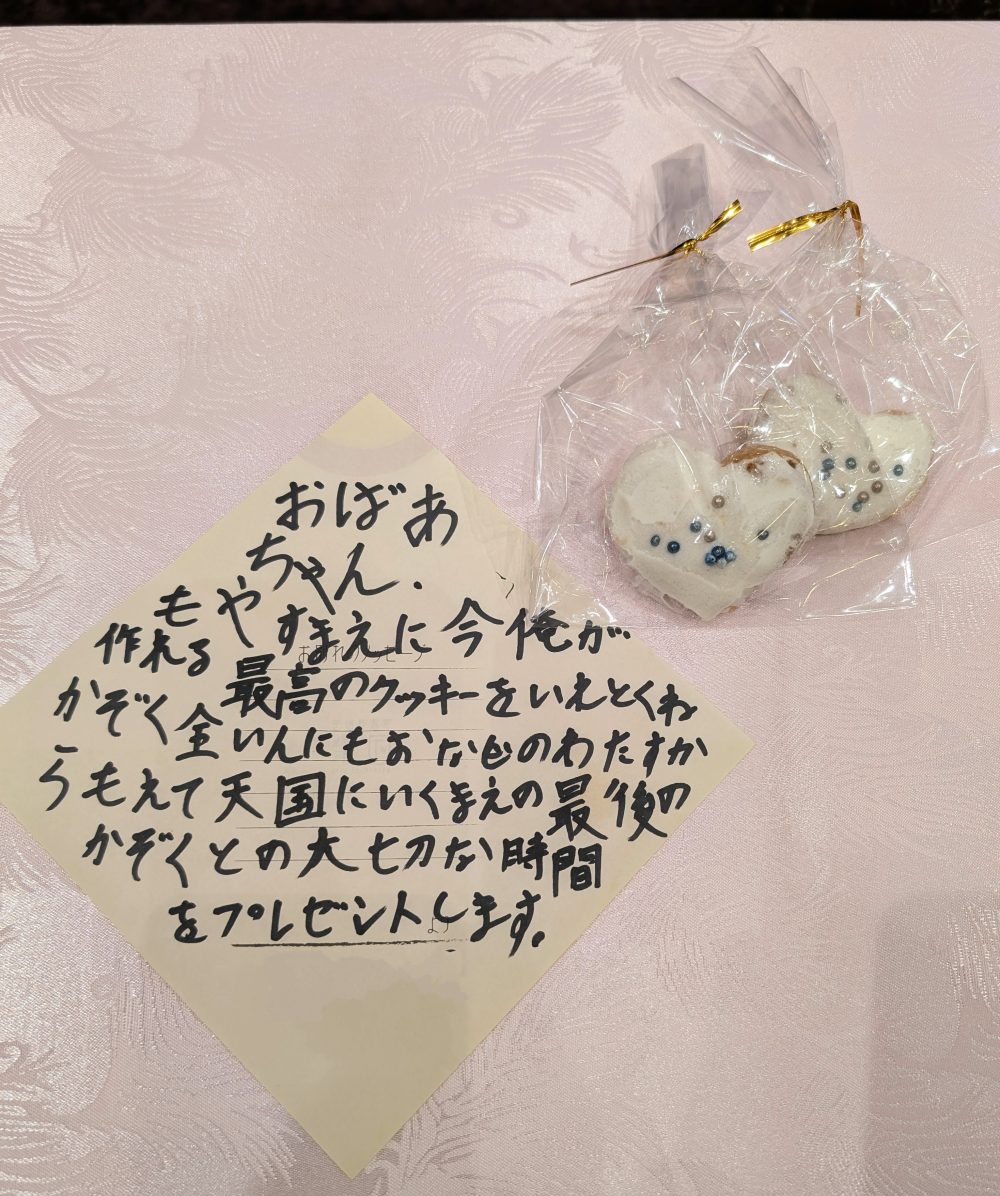 おばあ
ちゃん.
もやすまえに今俺が
作れる最高のクッキーをいれとくね
かぞく全いんにもおなじのわたすか
らもえて天国にいくまえの最後の
かぞくとの大切な時間
をプレゼントします。
お別れのメッセージ
より